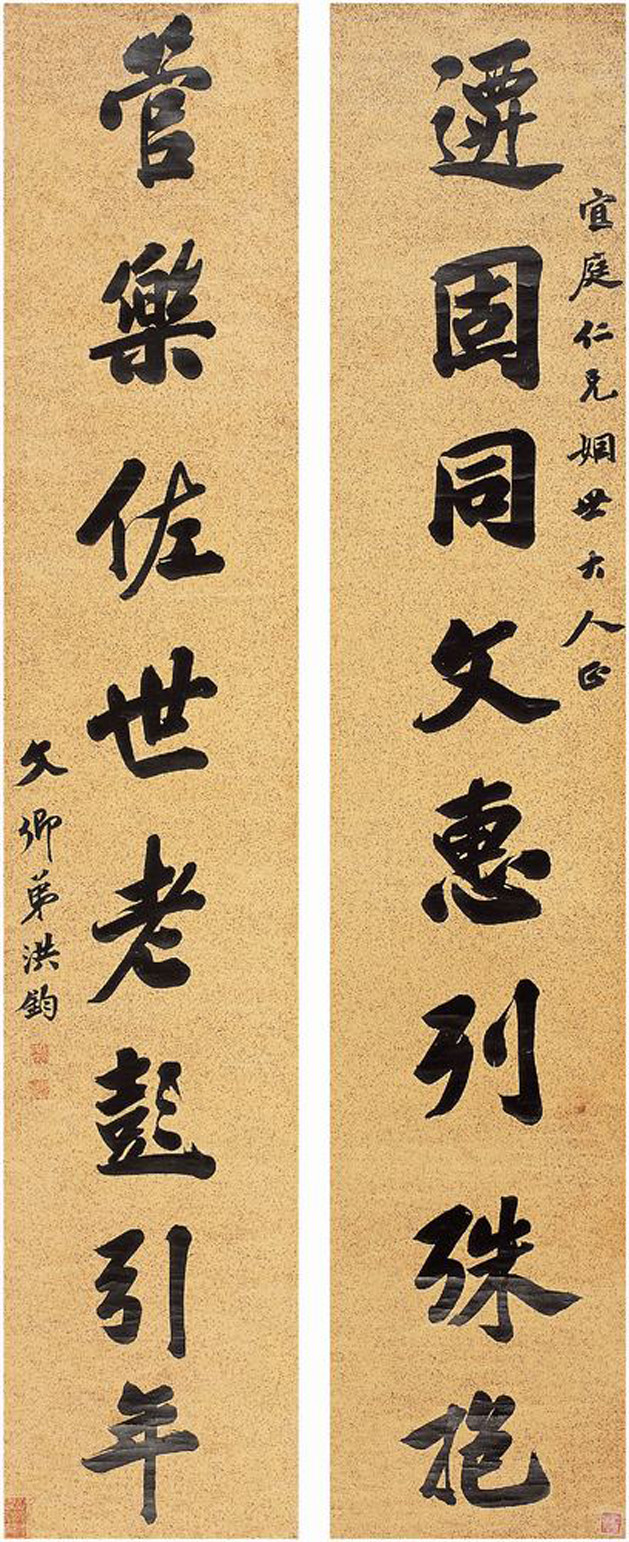 宜庭仁兄姻世大人正
遷固同文惠列殊抱
管樂佐世老彭引年
文卿弟洪鈞